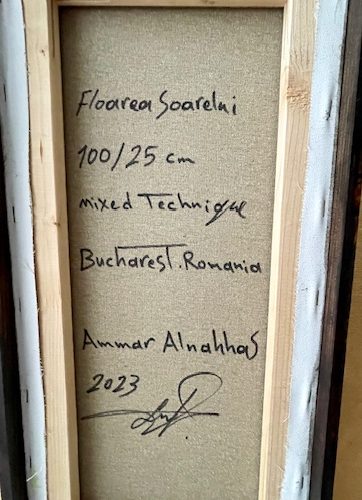 Floarea Soarelui
100/25 cm
mixed Technique
Bucharest.Romania
Ammar Alnahhas
2023